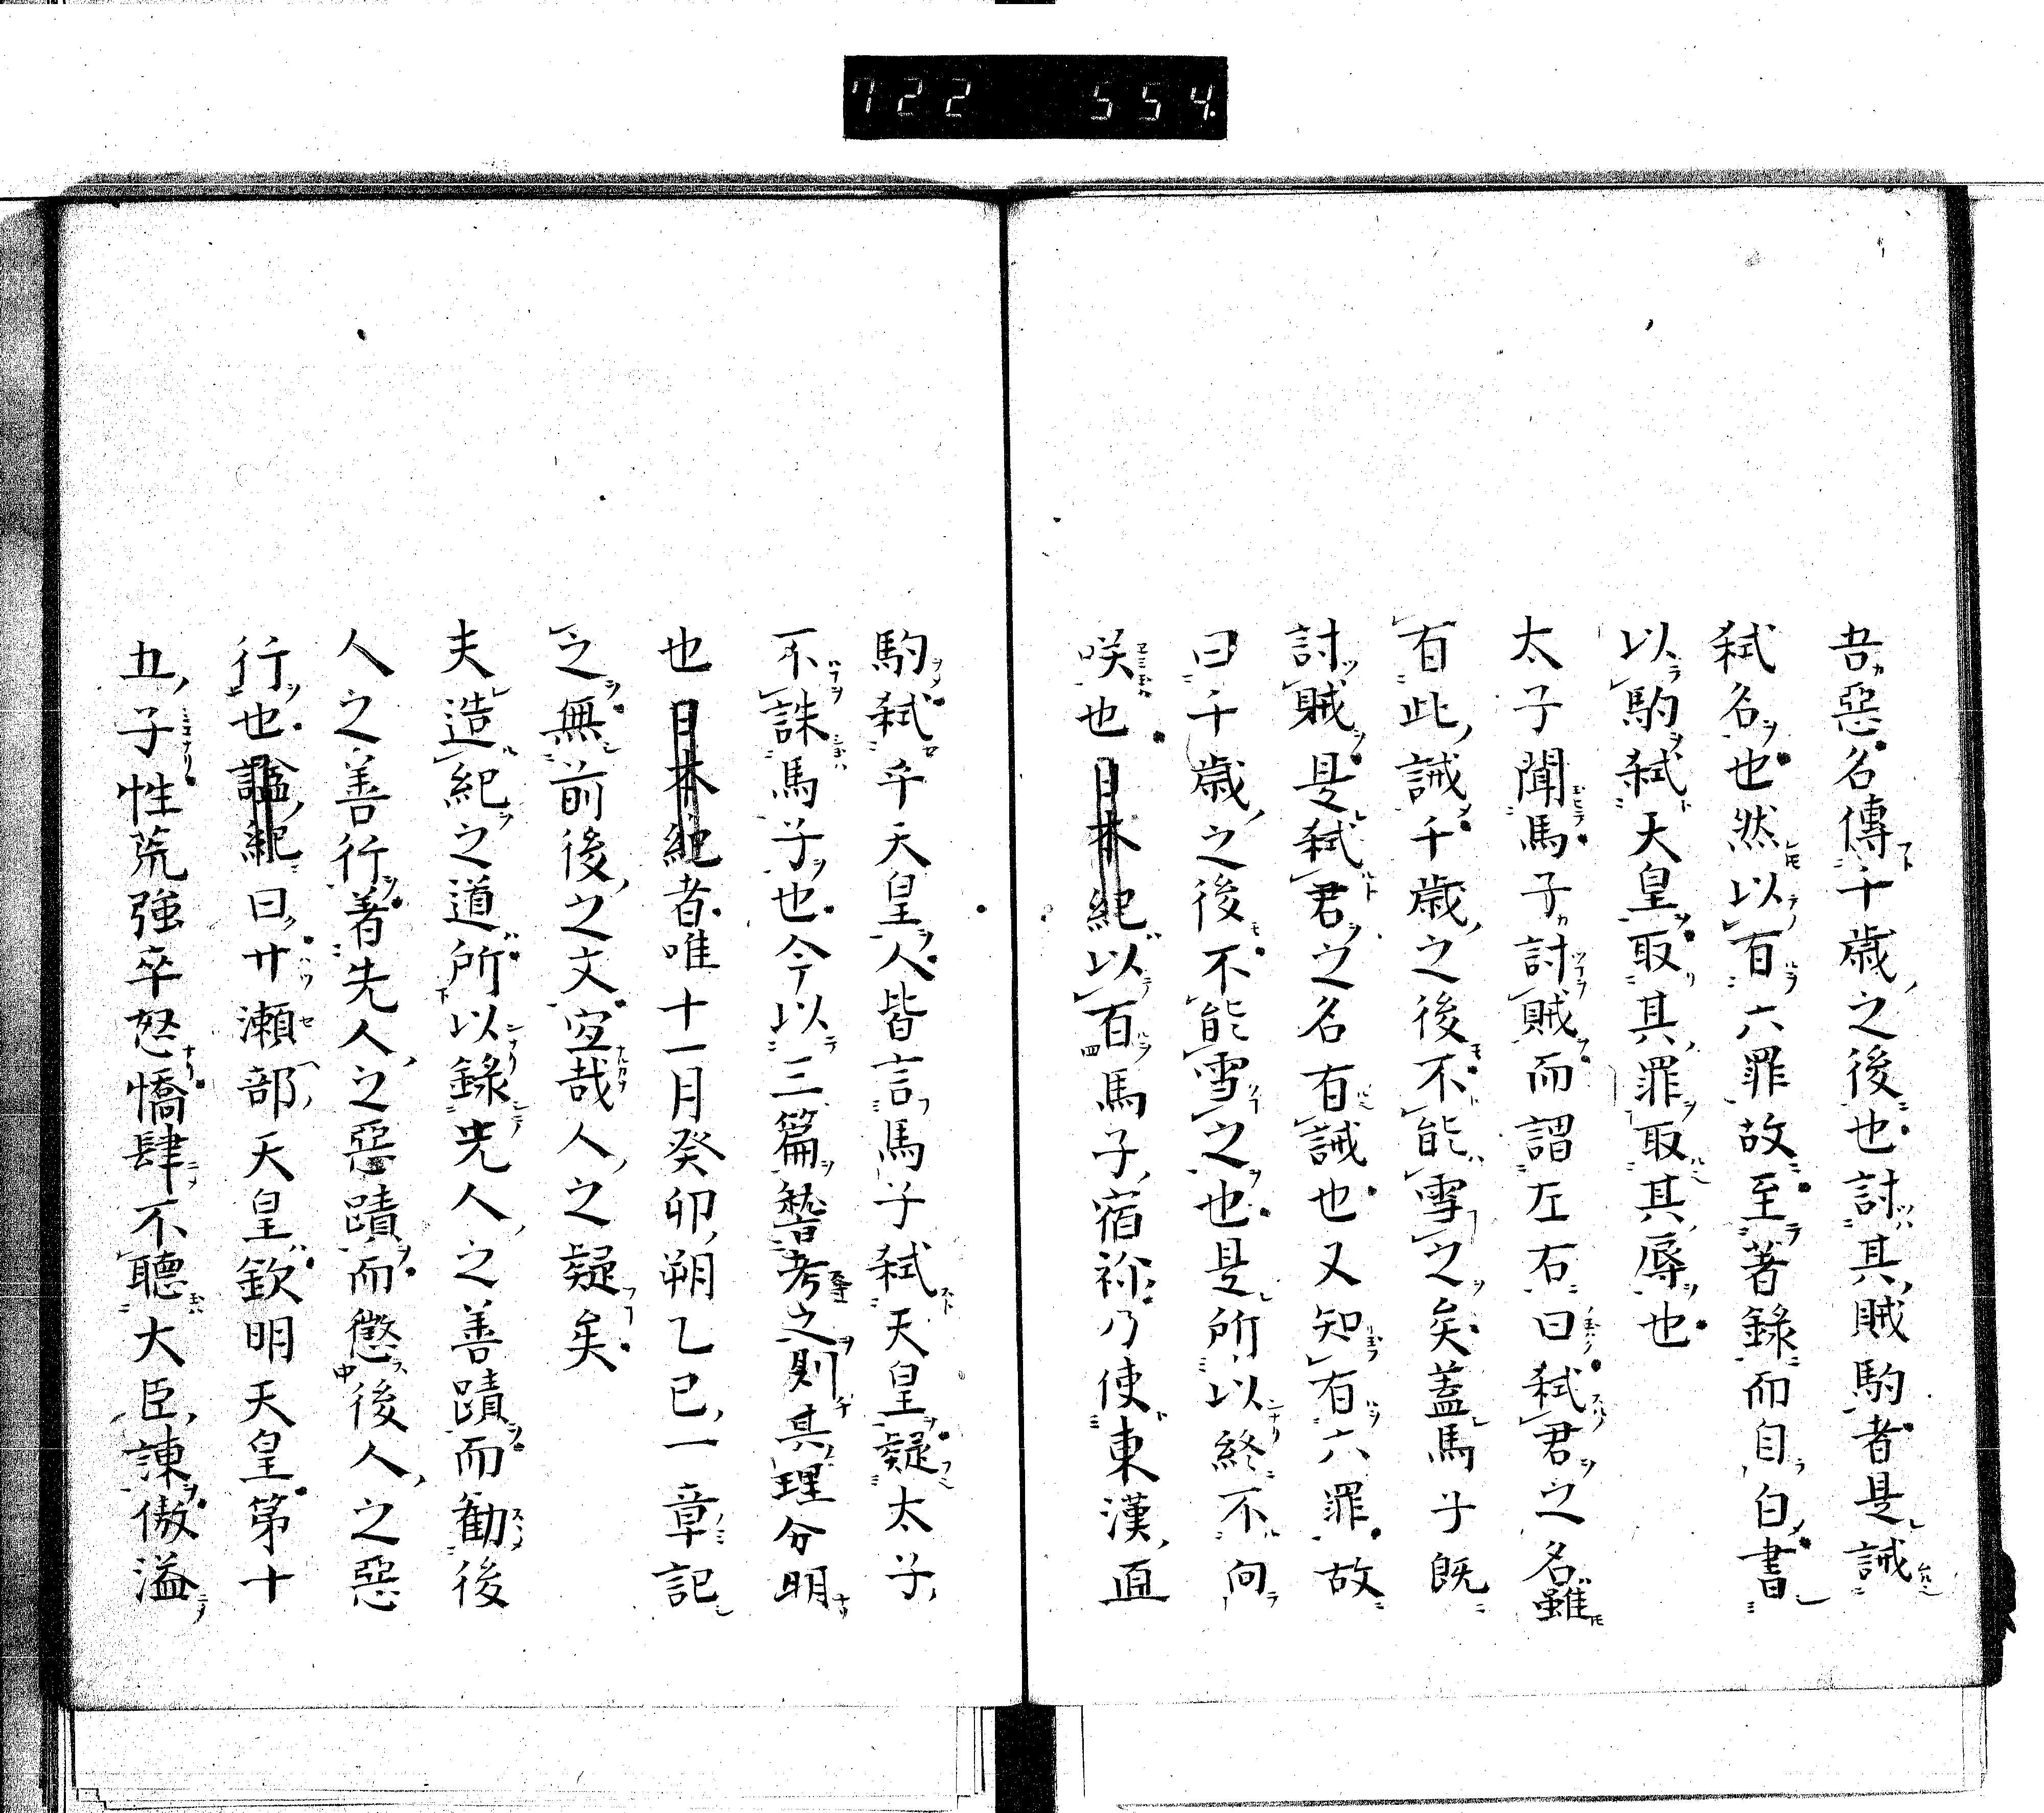 722 554
吾惡名傳千歳之後也討其賊駒者是誡
弑名也然以有六罪故至著錄而自白書
以駒弑天皇取其罪取其辱也
太子聞馬子討賊而謂左右曰弑君之名雖
有此誡千歳之後不能雪之矣蓋馬子既
討賊是弑君之名有誡也又知有六罪故
曰千歳之後不能雪之也是所以終不向
咲也日本紀以有馬子宿祢乃使東漢直
駒弑乎天皇人皆言馬子弑天皇疑太子
不誅馬子也今以三篇替考之則其理分明
也日本紀者唯十一月癸卯朔乙巳一章記
之無前後之文宜哉人之疑矣
夫造紀之道所以錄先人之善蹟而勸後
人之善行著先人之惡蹟而懲後人之惡
行也謚紀曰廿瀬部天皇欽明天皇第十
五子性荒強卒怒憍肆不聽大臣諫傲溢